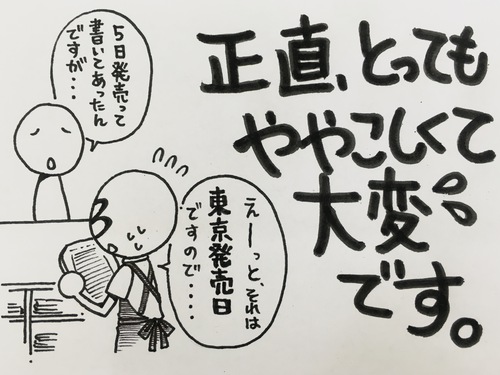 正直、とっても
ややこしくて
大変
です。
5日発売って
書いてあったん
ですが・・・
えーっと、それは
東京発売日
ですので・・・・